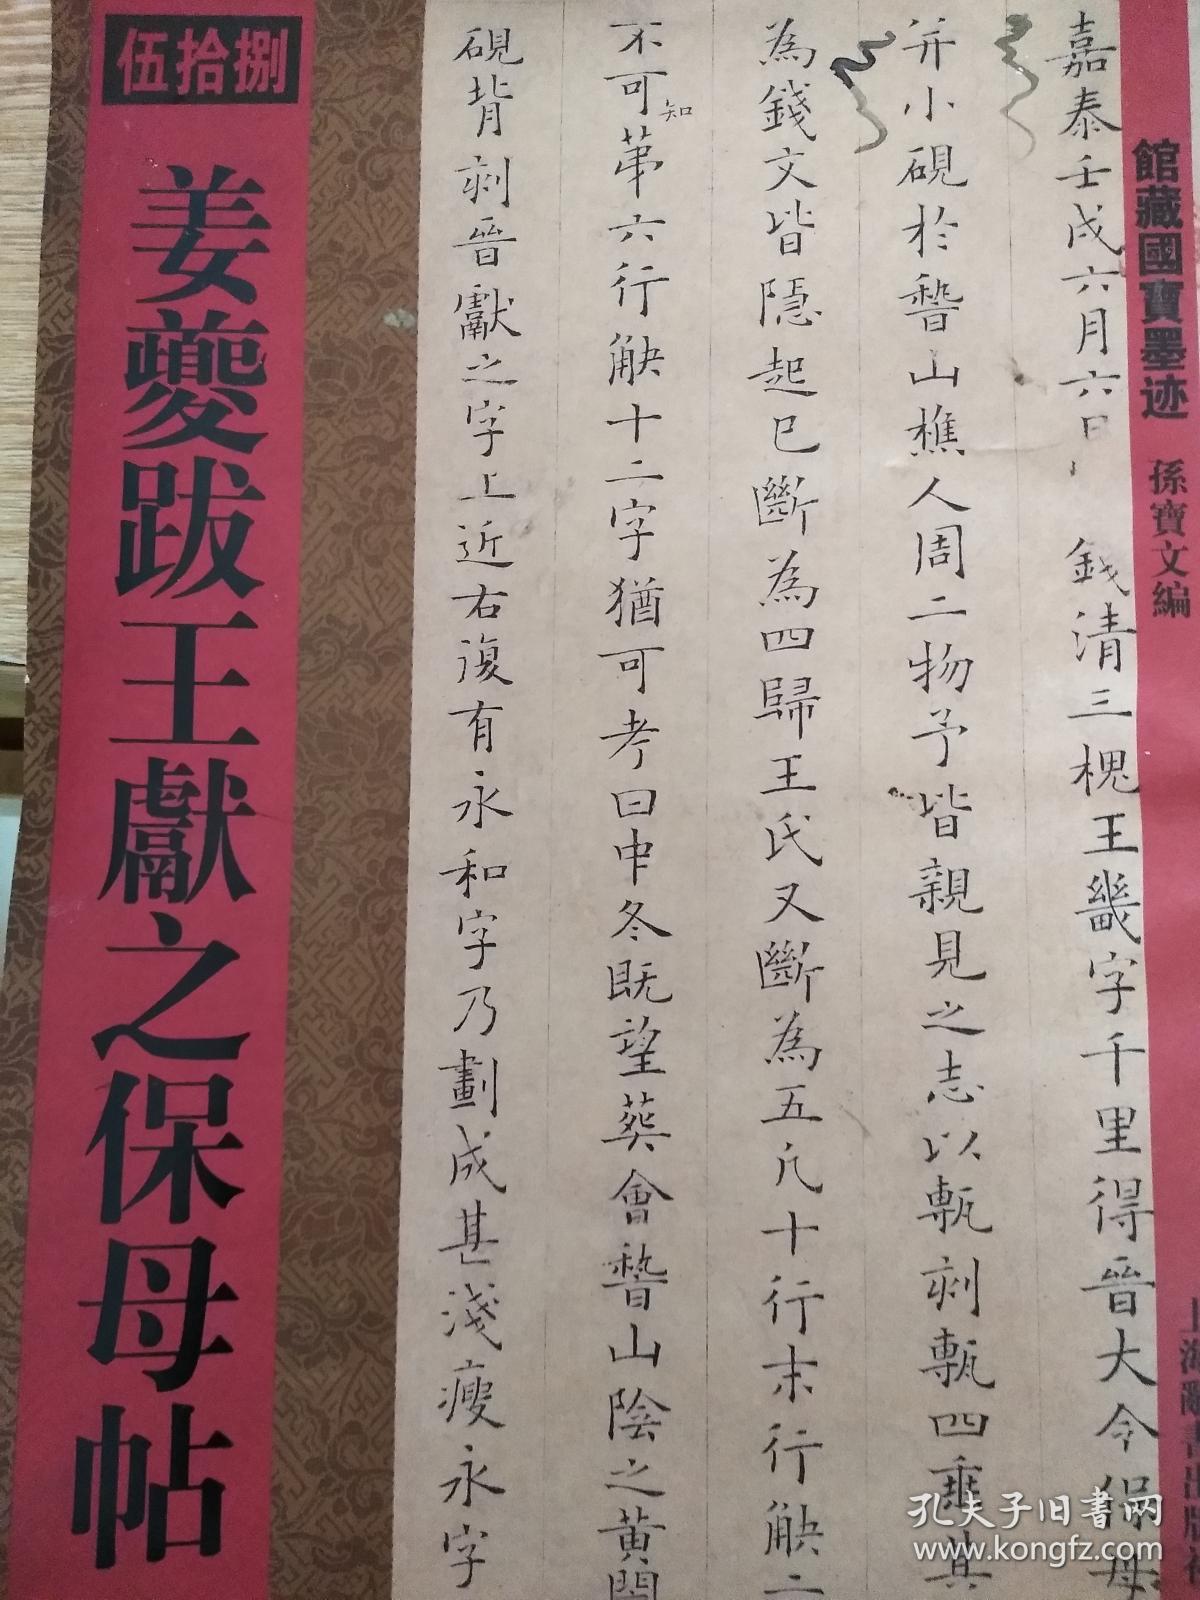 館藏國寶墨迹 孫寶文編
上海辭書出版社
嘉泰壬戌六月六日 錢清三槐王畿字千里得晉大令保母
并小硯於稽山樵人周二物予皆親見之志以甎刻甎四垂其
為錢文皆隱起已斷為四歸王氏又斷為五凡十行末行缺二
不可知第六行缺十二字猶可考曰中冬既望葬會稽山陰之黃閍
硯背刻晉獻之字上近右復有永和字乃劃成甚淺瘦永字
伍拾捌
姜夔跋王獻之保母帖
孔夫子旧书网
www.kongfz.com